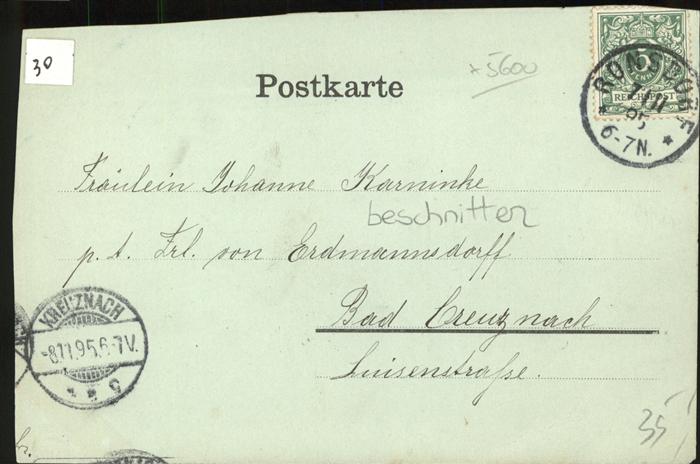 30
Postkarte
x5600
5
REICHSPOST
RONSDORF
7/11
95
* 6-7N. *
Fräulein Johanne Karninke
beschnitten
p. A. Frl. von Erdmannsdorff
Bad Creuznach
Luisenstraße.
KREUZNACH
-8.11.95.6-7V.
* * c
35